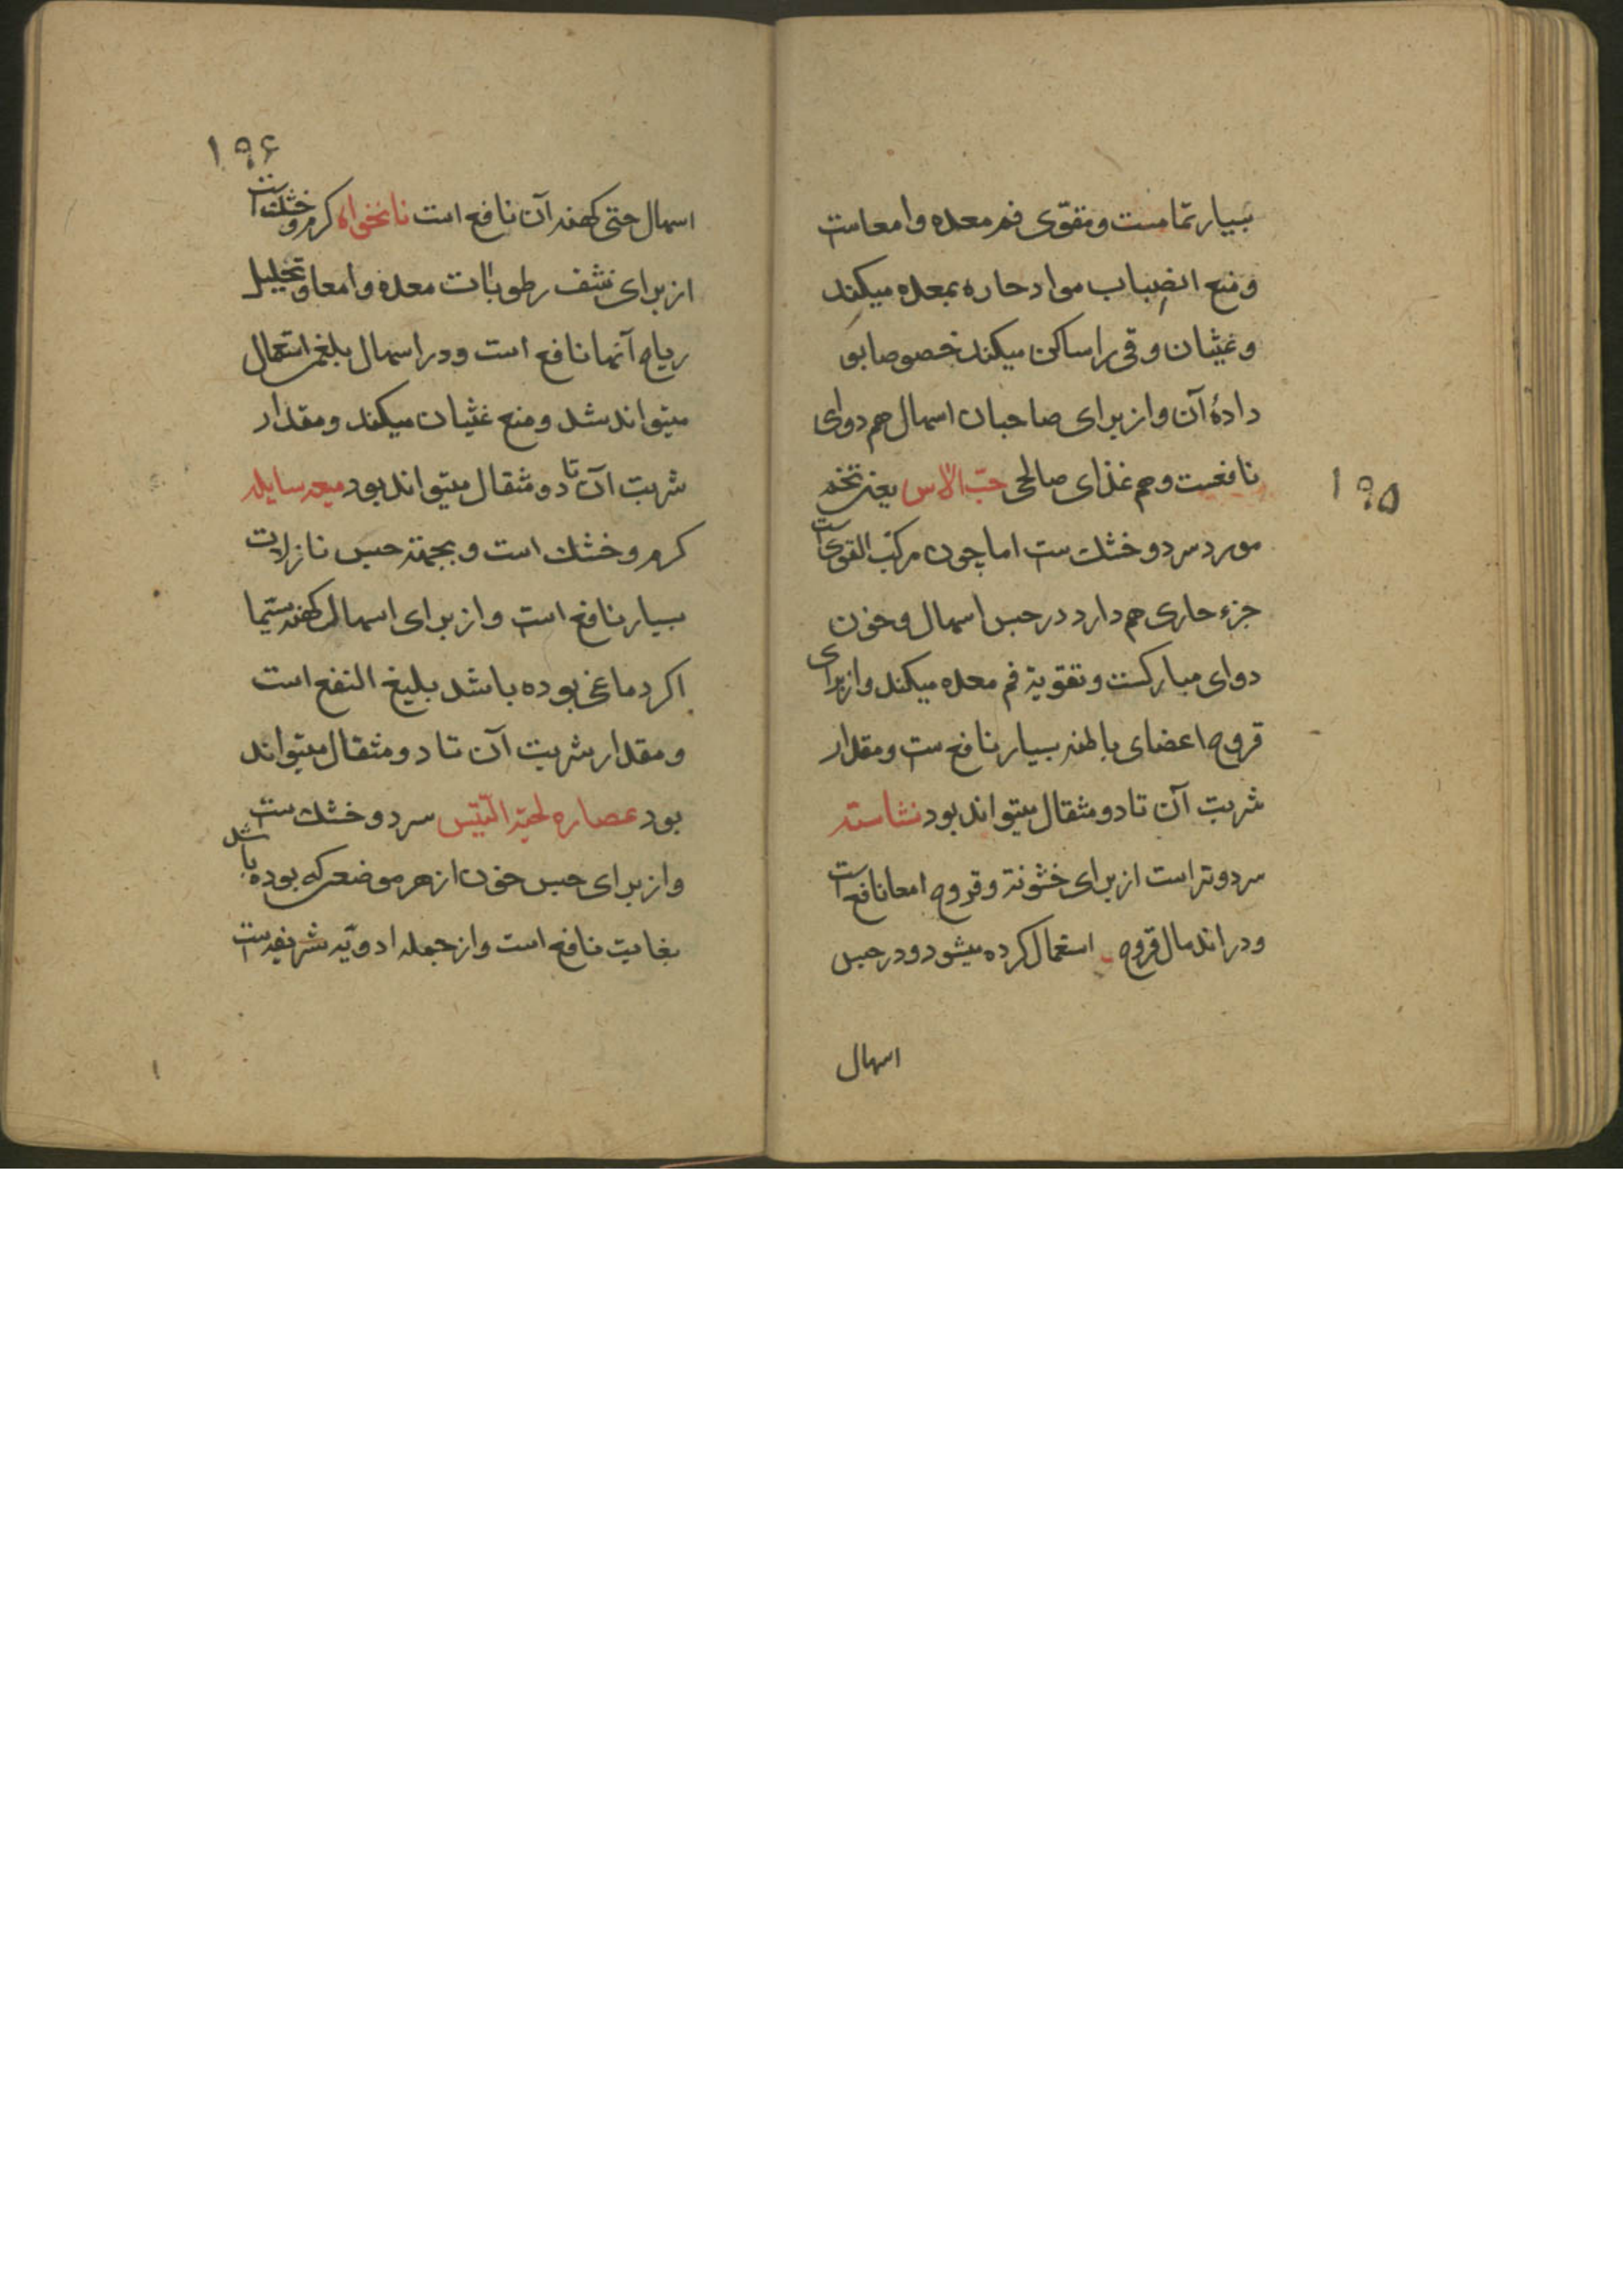 بسیار تمامست و مقوّی فم معده و امعاست
و منع انضِباب مواد حاره بمعده میکند
و غثیان و قی را ساکن میکند خصوصا بو
دادۀ آن و از برای صاحبان اسهال هم دوای
نافعست و هم غذای صالحی حبّ الآس یعنی تخم
۱۹۵
مورد سرد و خشک ست اما چون مرکّب القوی است
جزء حاری هم دارد در حبس اسهال و خون
دوای مبارکست و تقویة فم معده میکند و از برای
قروح اعضای باطنه بسیار نافع ست و مقدار
شربت آن تا دو مثقال میتواند بود نشاسته
سرد و تر است از برای خشونة و قروح امعا نافع است
و در اندمال قروح استعمال کرده میشود و در حبس
اسهال
۱۹۶
اسهال حتی کهنه آن نافع است نانخواه کرم و خشک است
از برای نشف رطوبات معده و امعا و تحلیل
ریاح آنها نافع است و در اسهال بلغمی استعمال
میتواند شد و منع غثیان میکند و مقدار
شربت آن تا دو مثقال میتواند بود میعه سایله
کرم و خشک است و بجهة حبس نازلات
بسیار نافع است و از برای اسهال کهنه سیّما
اکر دماغی بوده باشد بلیغ النفع است
و مقدار شربت آن تا دو مثقال میتواند
بود عصاره لحیة التّیس سرد و خشک ست
و از برای حبس خون از هر موضعی که بوده باشد
بغایت نافع است و از جمله ادویّه شریفه ست